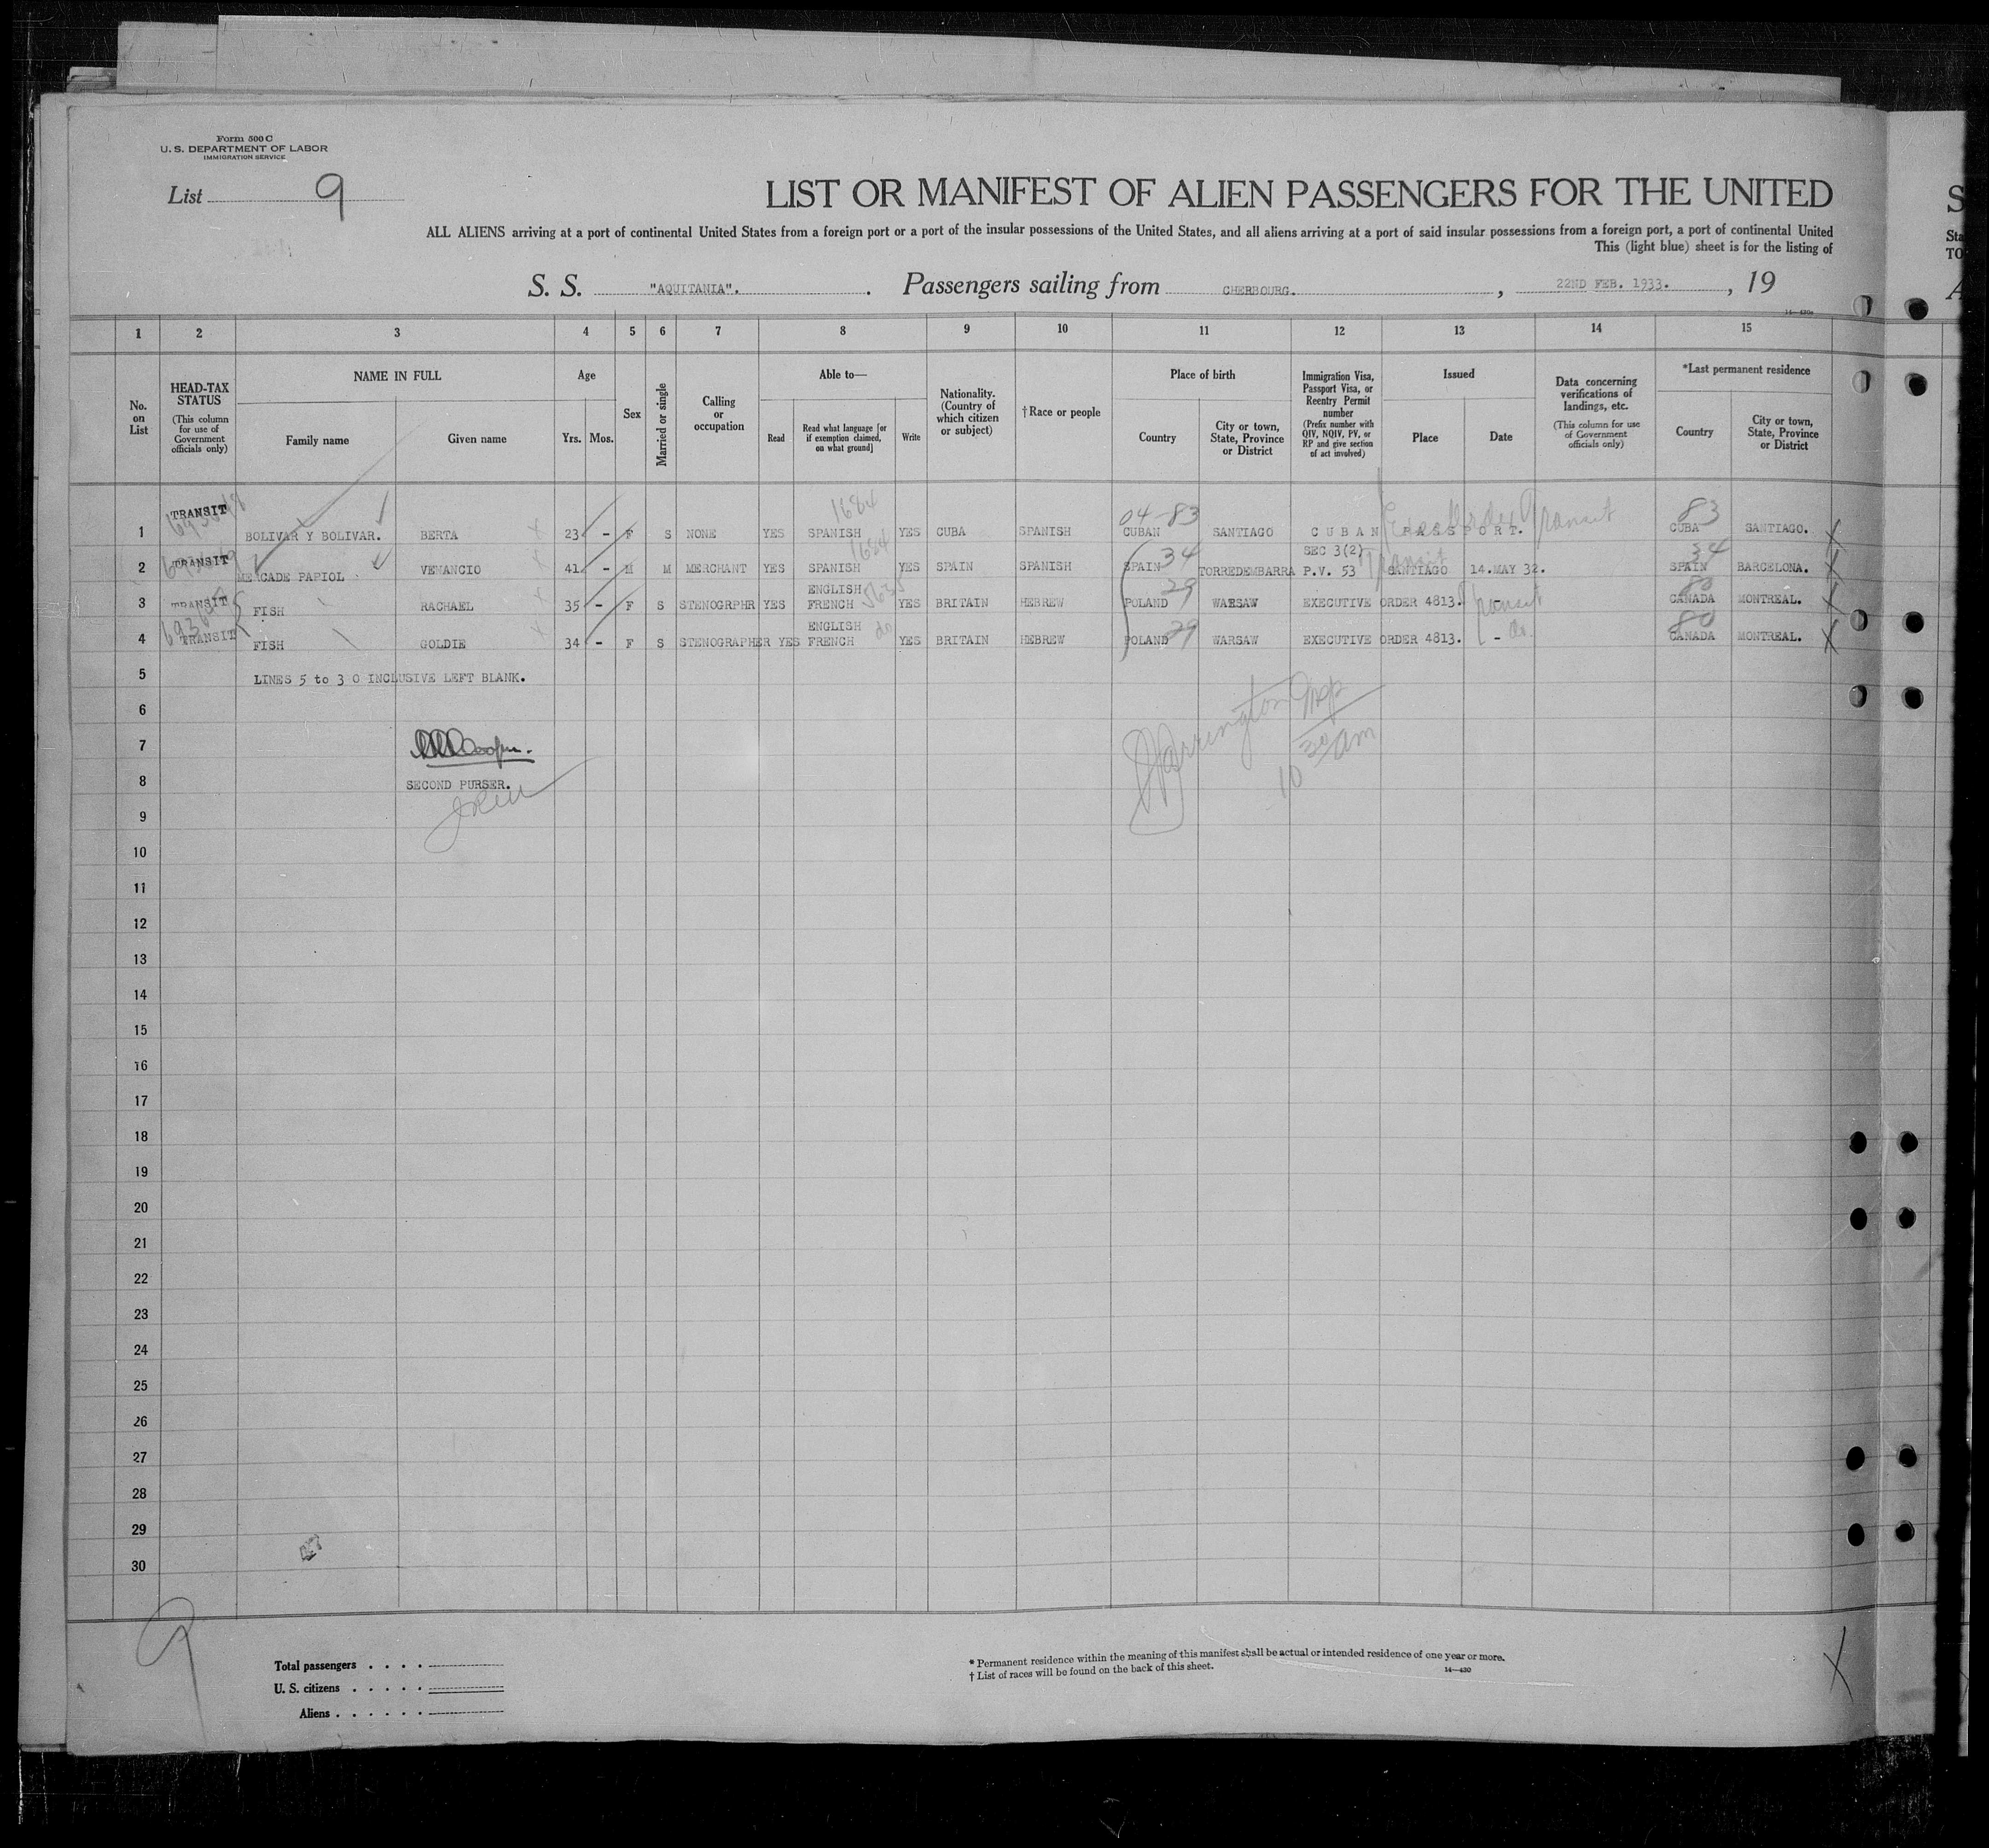 Form 500 C
U. S. DEPARTMENT OF LABOR
IMMIGRATION SERVICE
List 9
LIST OR MANIFEST OF ALIEN PASSENGERS FOR THE UNITED
ALL ALIENS arriving at a port of continental United States from a foreign port or a port of the insular possessions of the United States, and all aliens arriving at a port of said insular possessions from a foreign port, a port of continental United
This (light blue) sheet is for the listing of
S. S. "AQUITANIA". Passengers sailing from CHERBOURG. , 22ND FEB. 1933. , 19
14—430a
1 2 3 4 5 6 7 8 9 10 11 12 13 14 15
No. on List
HEAD-TAX STATUS (This column for use of Government officials only)
NAME IN FULL
Family name Given name
Age
Yrs. Mos.
Sex
Married or single
Calling or occupation
Able to—
Read Read what language [or if exemption claimed, on what ground] Write
Nationality. (Country of which citizen or subject)
† Race or people
Place of birth
Country City or town, State, Province or District
Immigration Visa, Passport Visa, or Reentry Permit number (Prefix number with QIV, NQIV, PV, or RP and give section of act involved)
Issued
Place Date
Data concerning verifications of landings, etc. (This column for use of Government officials only)
*Last permanent residence
Country City or town, State, Province or District
1684 04-83 83
1 TRANSIT BOLIVAR Y BOLIVAR. BERTA 23 - F S NONE YES SPANISH YES CUBA SPANISH CUBAN SANTIAGO CUBAN PASSPORT. Transit CUBA SANTIAGO. X
1684 34 SEC 3(2) Transit 34
2 TRANSIT MERCADE PAPIOL VENANCIO 41 - M M MERCHANT YES SPANISH YES SPAIN SPANISH SPAIN TORREDEMBARRA P.V. 53 SANTIAGO 14.MAY 32. SPAIN BARCELONA. X
ENGLISH 29 80
3 TRANSIT FISH RACHAEL 35 - F S STENOGRPHR YES FRENCH YES BRITAIN HEBREW POLAND WARSAW EXECUTIVE ORDER 4813. - Transit CANADA MONTREAL. X
ENGLISH do 29 80
4 TRANSIT FISH GOLDIE 34 - F S STENOGRAPHER YES FRENCH YES BRITAIN HEBREW POLAND WARSAW EXECUTIVE ORDER 4813. - do. CANADA MONTREAL. X
5 LINES 5 to 30 INCLUSIVE LEFT BLANK.
6
7
8 SECOND PURSER.
10 30 am
9
10
11
12
13
14
15
16
17
18
19
20
21
22
23
24
25
26
27
28
29
30
9
Total passengers . . . .
U. S. citizens . . . . .
Aliens . . . . . .
* Permanent residence within the meaning of this manifest shall be actual or intended residence of one year or more.
† List of races will be found on the back of this sheet.
14—430
X